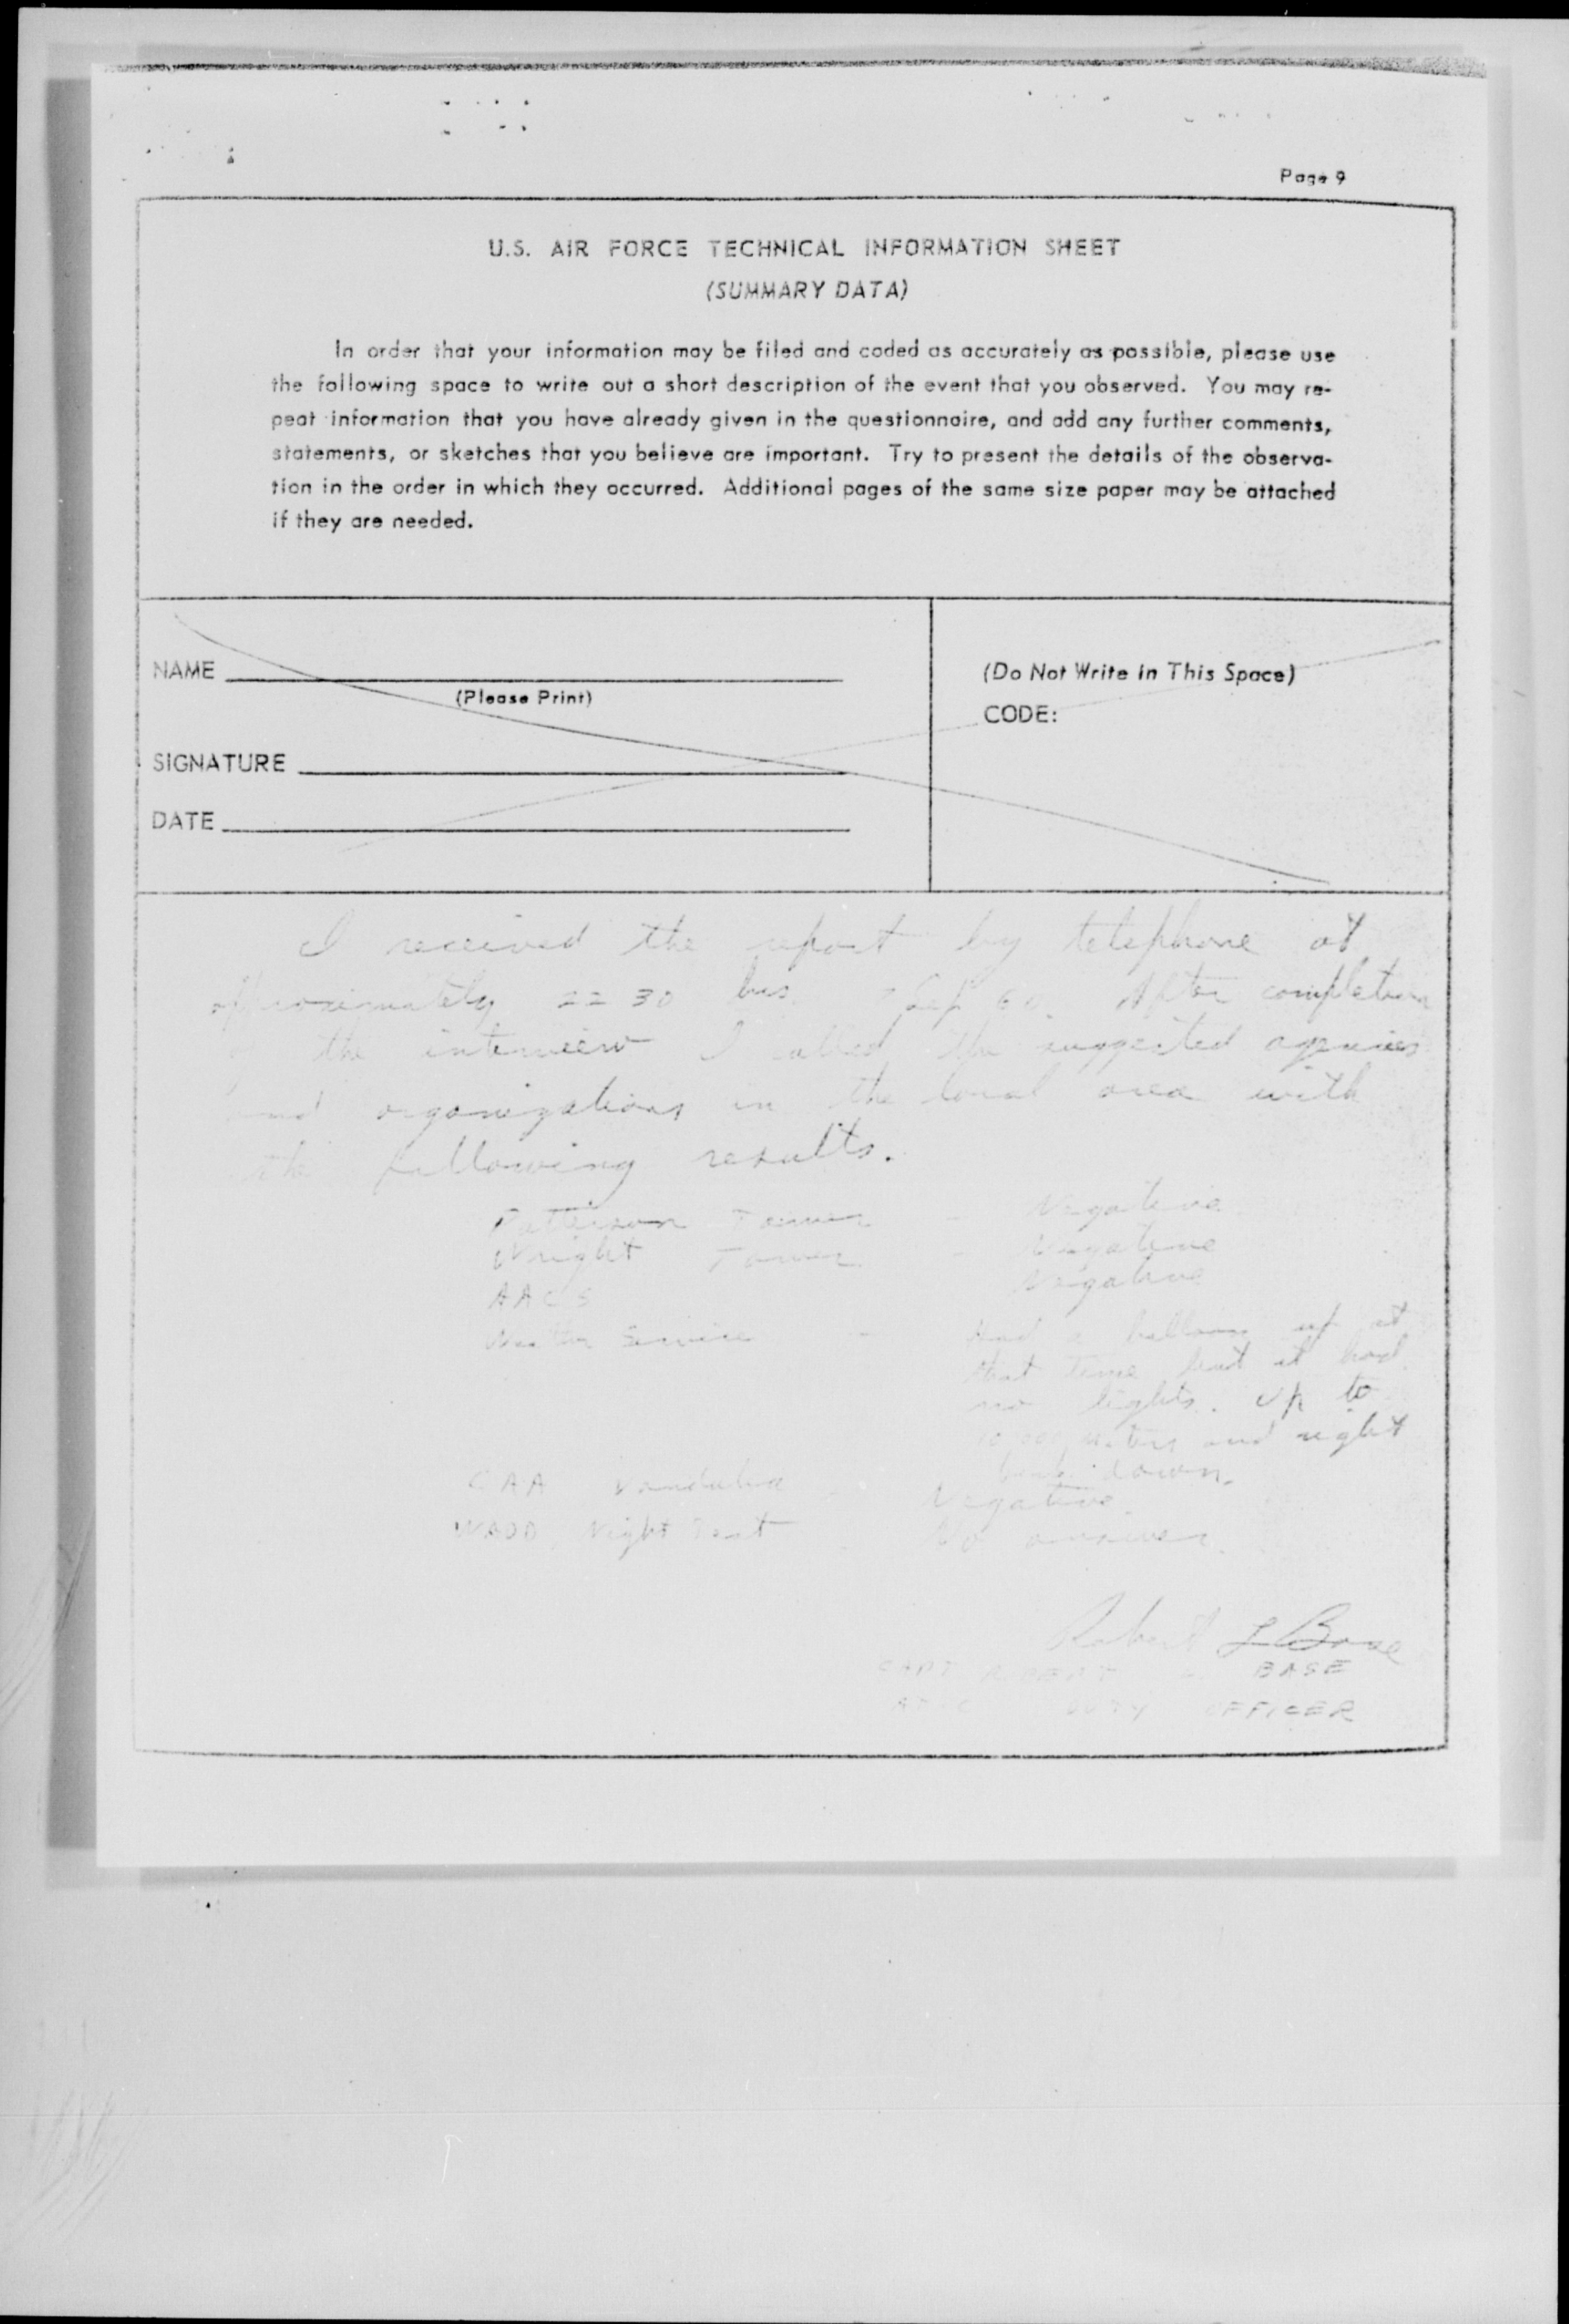 Page 9
U.S. AIR FORCE TECHNICAL INFORMATION SHEET
(SUMMARY DATA)
In order that your information may be filed and coded as accurately as possible, please use
the following space to write out a short description of the event that you observed. You may re-
peat information that you have already given in the questionnaire, and add any further comments,
statements, or sketches that you believe are important. Try to present the details of the observa-
tion in the order in which they occurred. Additional pages of the same size paper may be attached
if they are needed.
NAME
(Please Print)
SIGNATURE
DATE
(Do Not Write in This Space)
CODE:
I received the report by telephone at
approximately 22 30 hrs Sep 60. After completion
the interview I called the suggested agencies
and organizations in the local area with
the following results.
Patterson Tower - Negative
Wright Tower - Negative
AACS Negative
Weather Service - Had a balloon up at
that time but it had
no lights. Up to
10,000 meters and right
back down.
CAA Vandalia Negative
WADD Night Test No answer.
Robert L Base
CAPT ROBERT L BASE
DUTY OFFICER